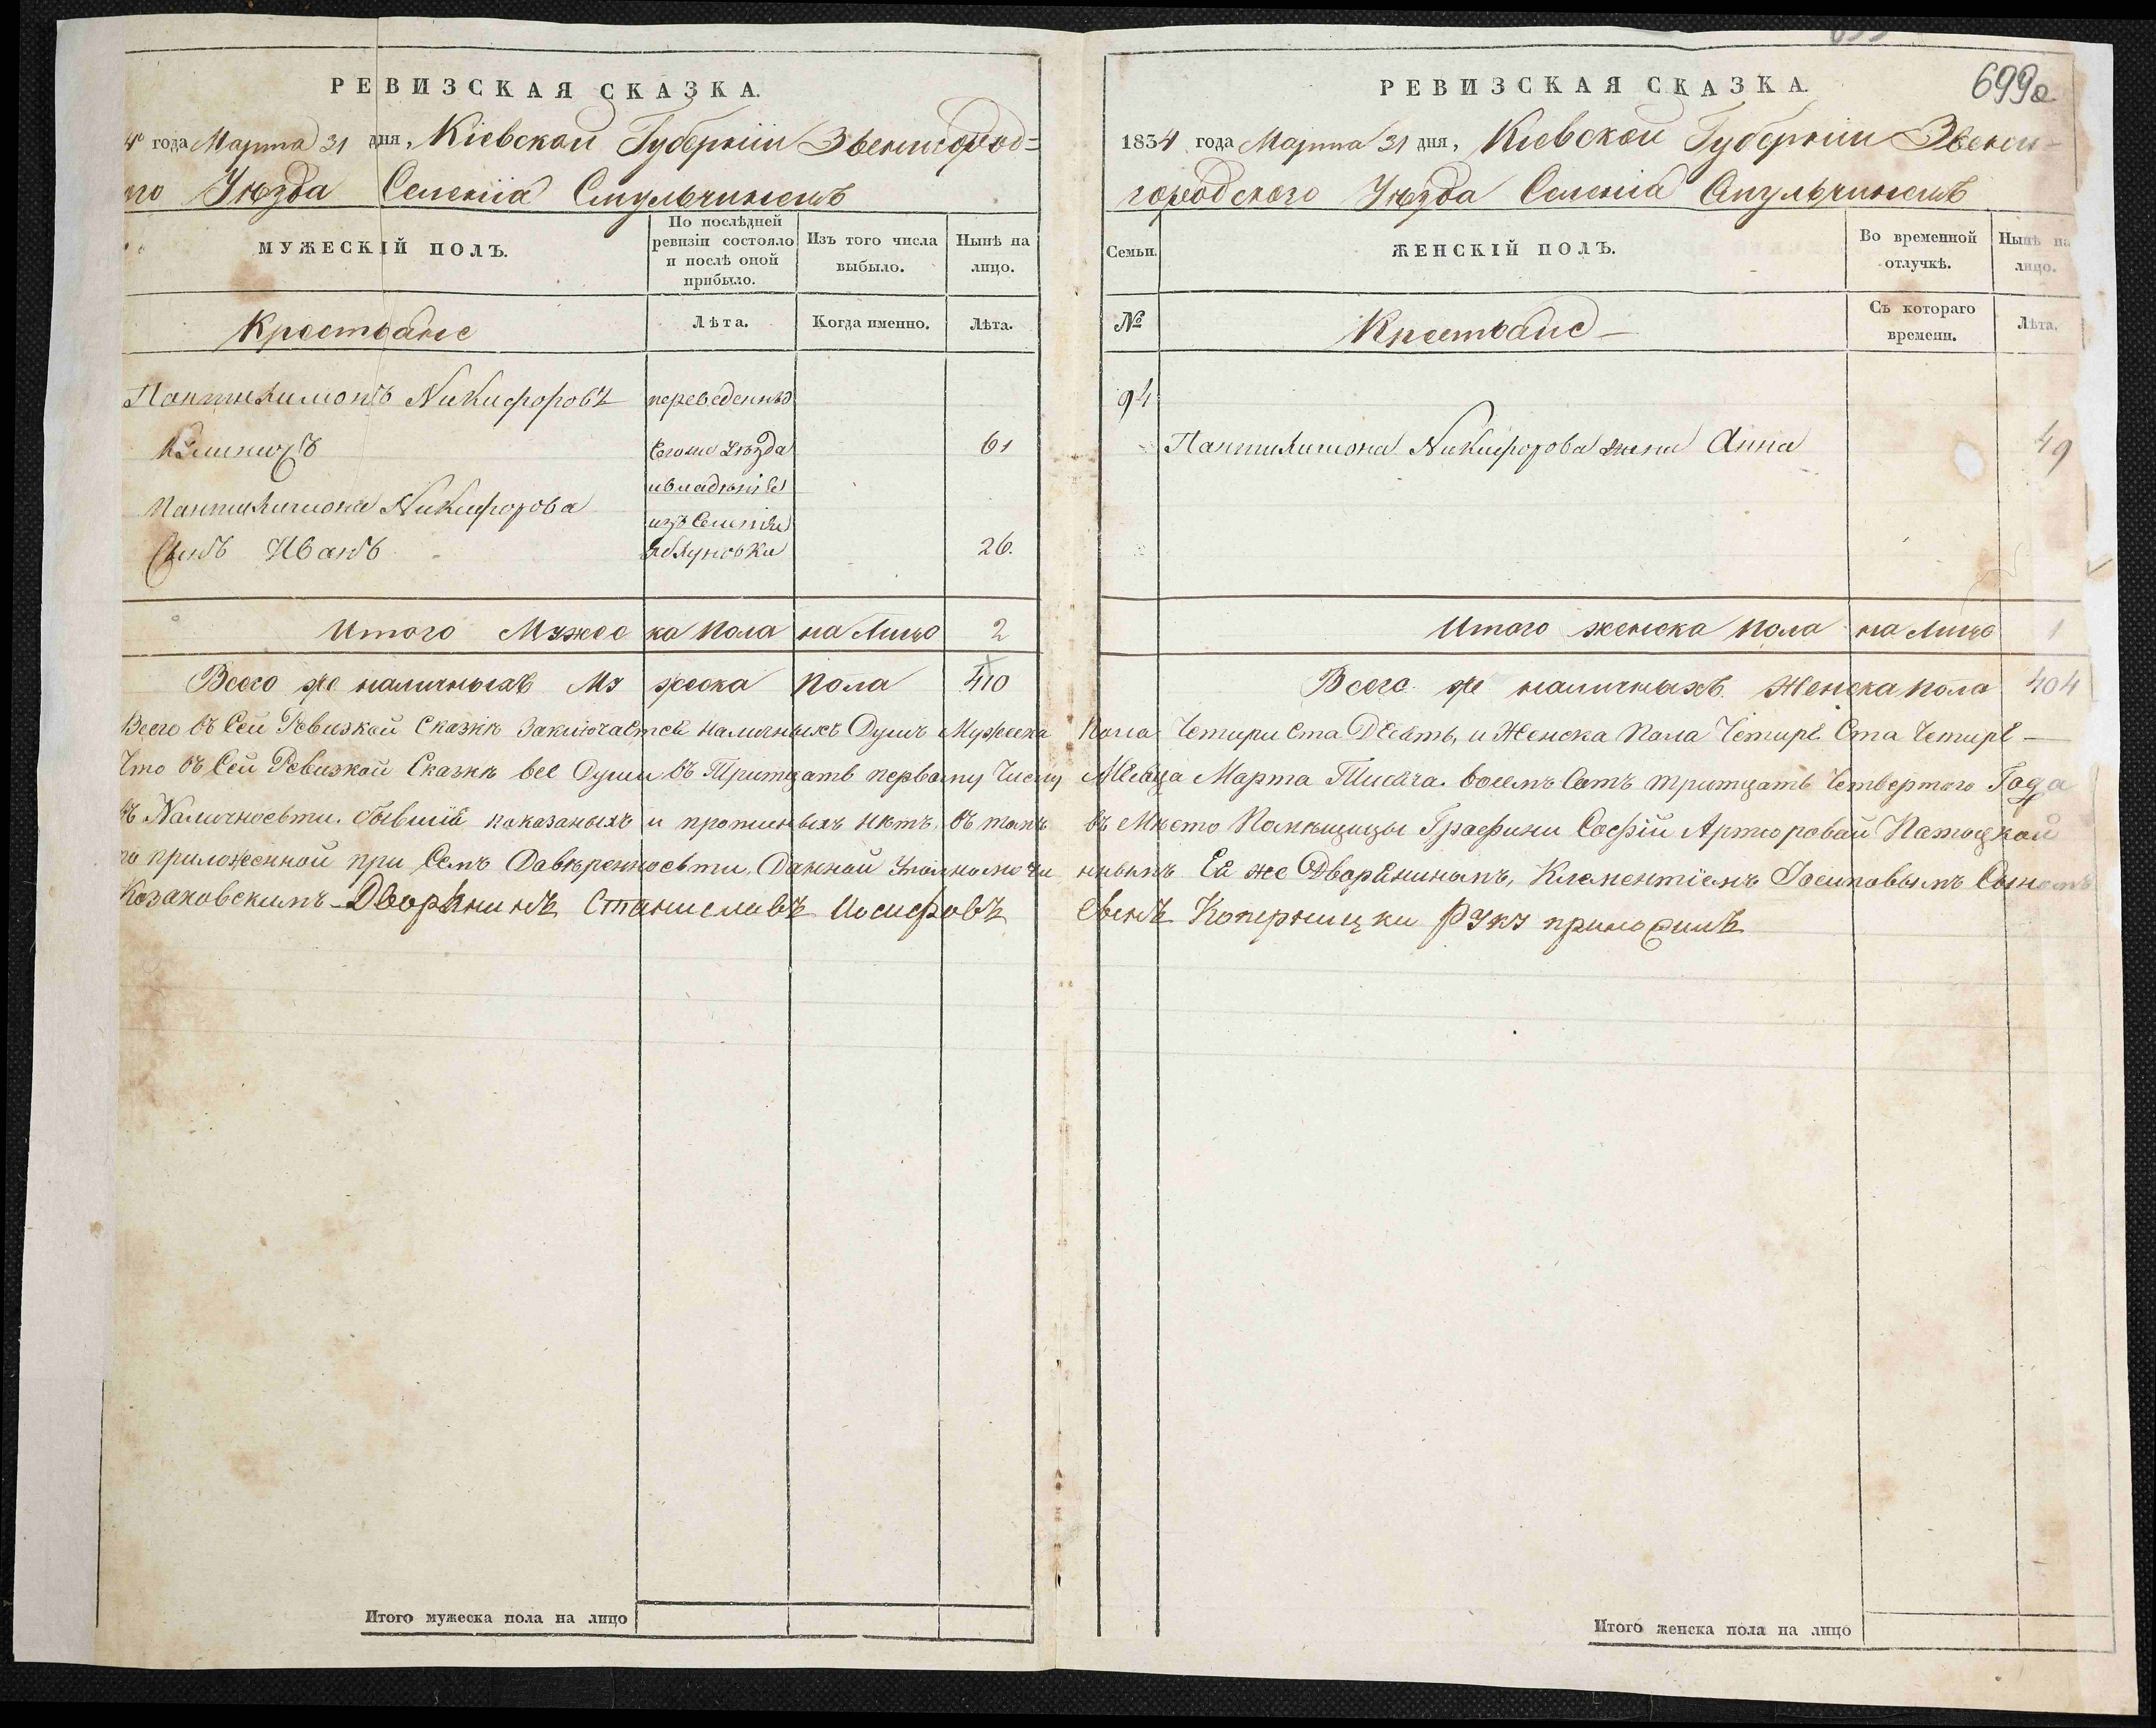 РЕВИЗСКАЯ СКАЗКА.
4 года Марта 31 дня, Кіевской Губерніи Звенигород-
го Уѣзда Селенія Смульчинецъ
МУЖЕСКІЙ ПОЛЪ.
По послѣдней ревизіи состояло и послѣ оной прибыло.
Изъ того числа выбыло.
Нынѣ на лицо.
Крестьяне
Лѣта.
Когда именно.
Лѣта.
Пантилимонъ Никифоровъ переведенны
Сего же Уѣзда 61
и владѣнія
Пантилимона Никифорова
изъ Селенія
Сынъ Иванъ Яблуновки 26.
Итого Мужеска Пола на Лицо 2
Всего же наличныхъ Мужеска Пола 410
Итого мужеска пола на лицо
699а
РЕВИЗСКАЯ СКАЗКА.
1834 года Марта 31 дня, Кіевской Губерніи Звени-
городского Уѣзда Селенія Смульчинецъ
Семьи.
ЖЕНСКІЙ ПОЛЪ.
Во временной отлучкѣ.
Нынѣ на лицо.
№
Крестьяне
Съ котораго времени.
Лѣта.
94
Пантилимона Никифорова жена Анна 49
Итого женска пола на лицо 1
Всего же наличныхъ Женска пола 404
Всего въ Сей Ревизкой Сказкѣ Заключается наличныхъ Душъ Мужеска Пола Четыри Ста Десять, и Женска Пола Четыре Ста Четыре —
Что въ Сей Ревизкой Сказкѣ все Души въ Тритцать первому Числу Месяца Марта Тисяча восемъ Сотъ тритцать Четвертого Года
въ Наличности. бывшія показаныхъ и нѣтъ. въ томъ въ Мѣсто Помѣщицы Графини Софіи Артюровой Патоцкой
по приложенной при Семъ Давѣренности, Данной Уполномоче ннымъ Ея же Дворяниномъ, Клементіемъ Іосиповымъ Сыномъ
Казаковскимъ - Дворянинъ Станиславъ Иосифовъ Сынъ Коперницки Руку приложилъ
Итого женска пола на лицо